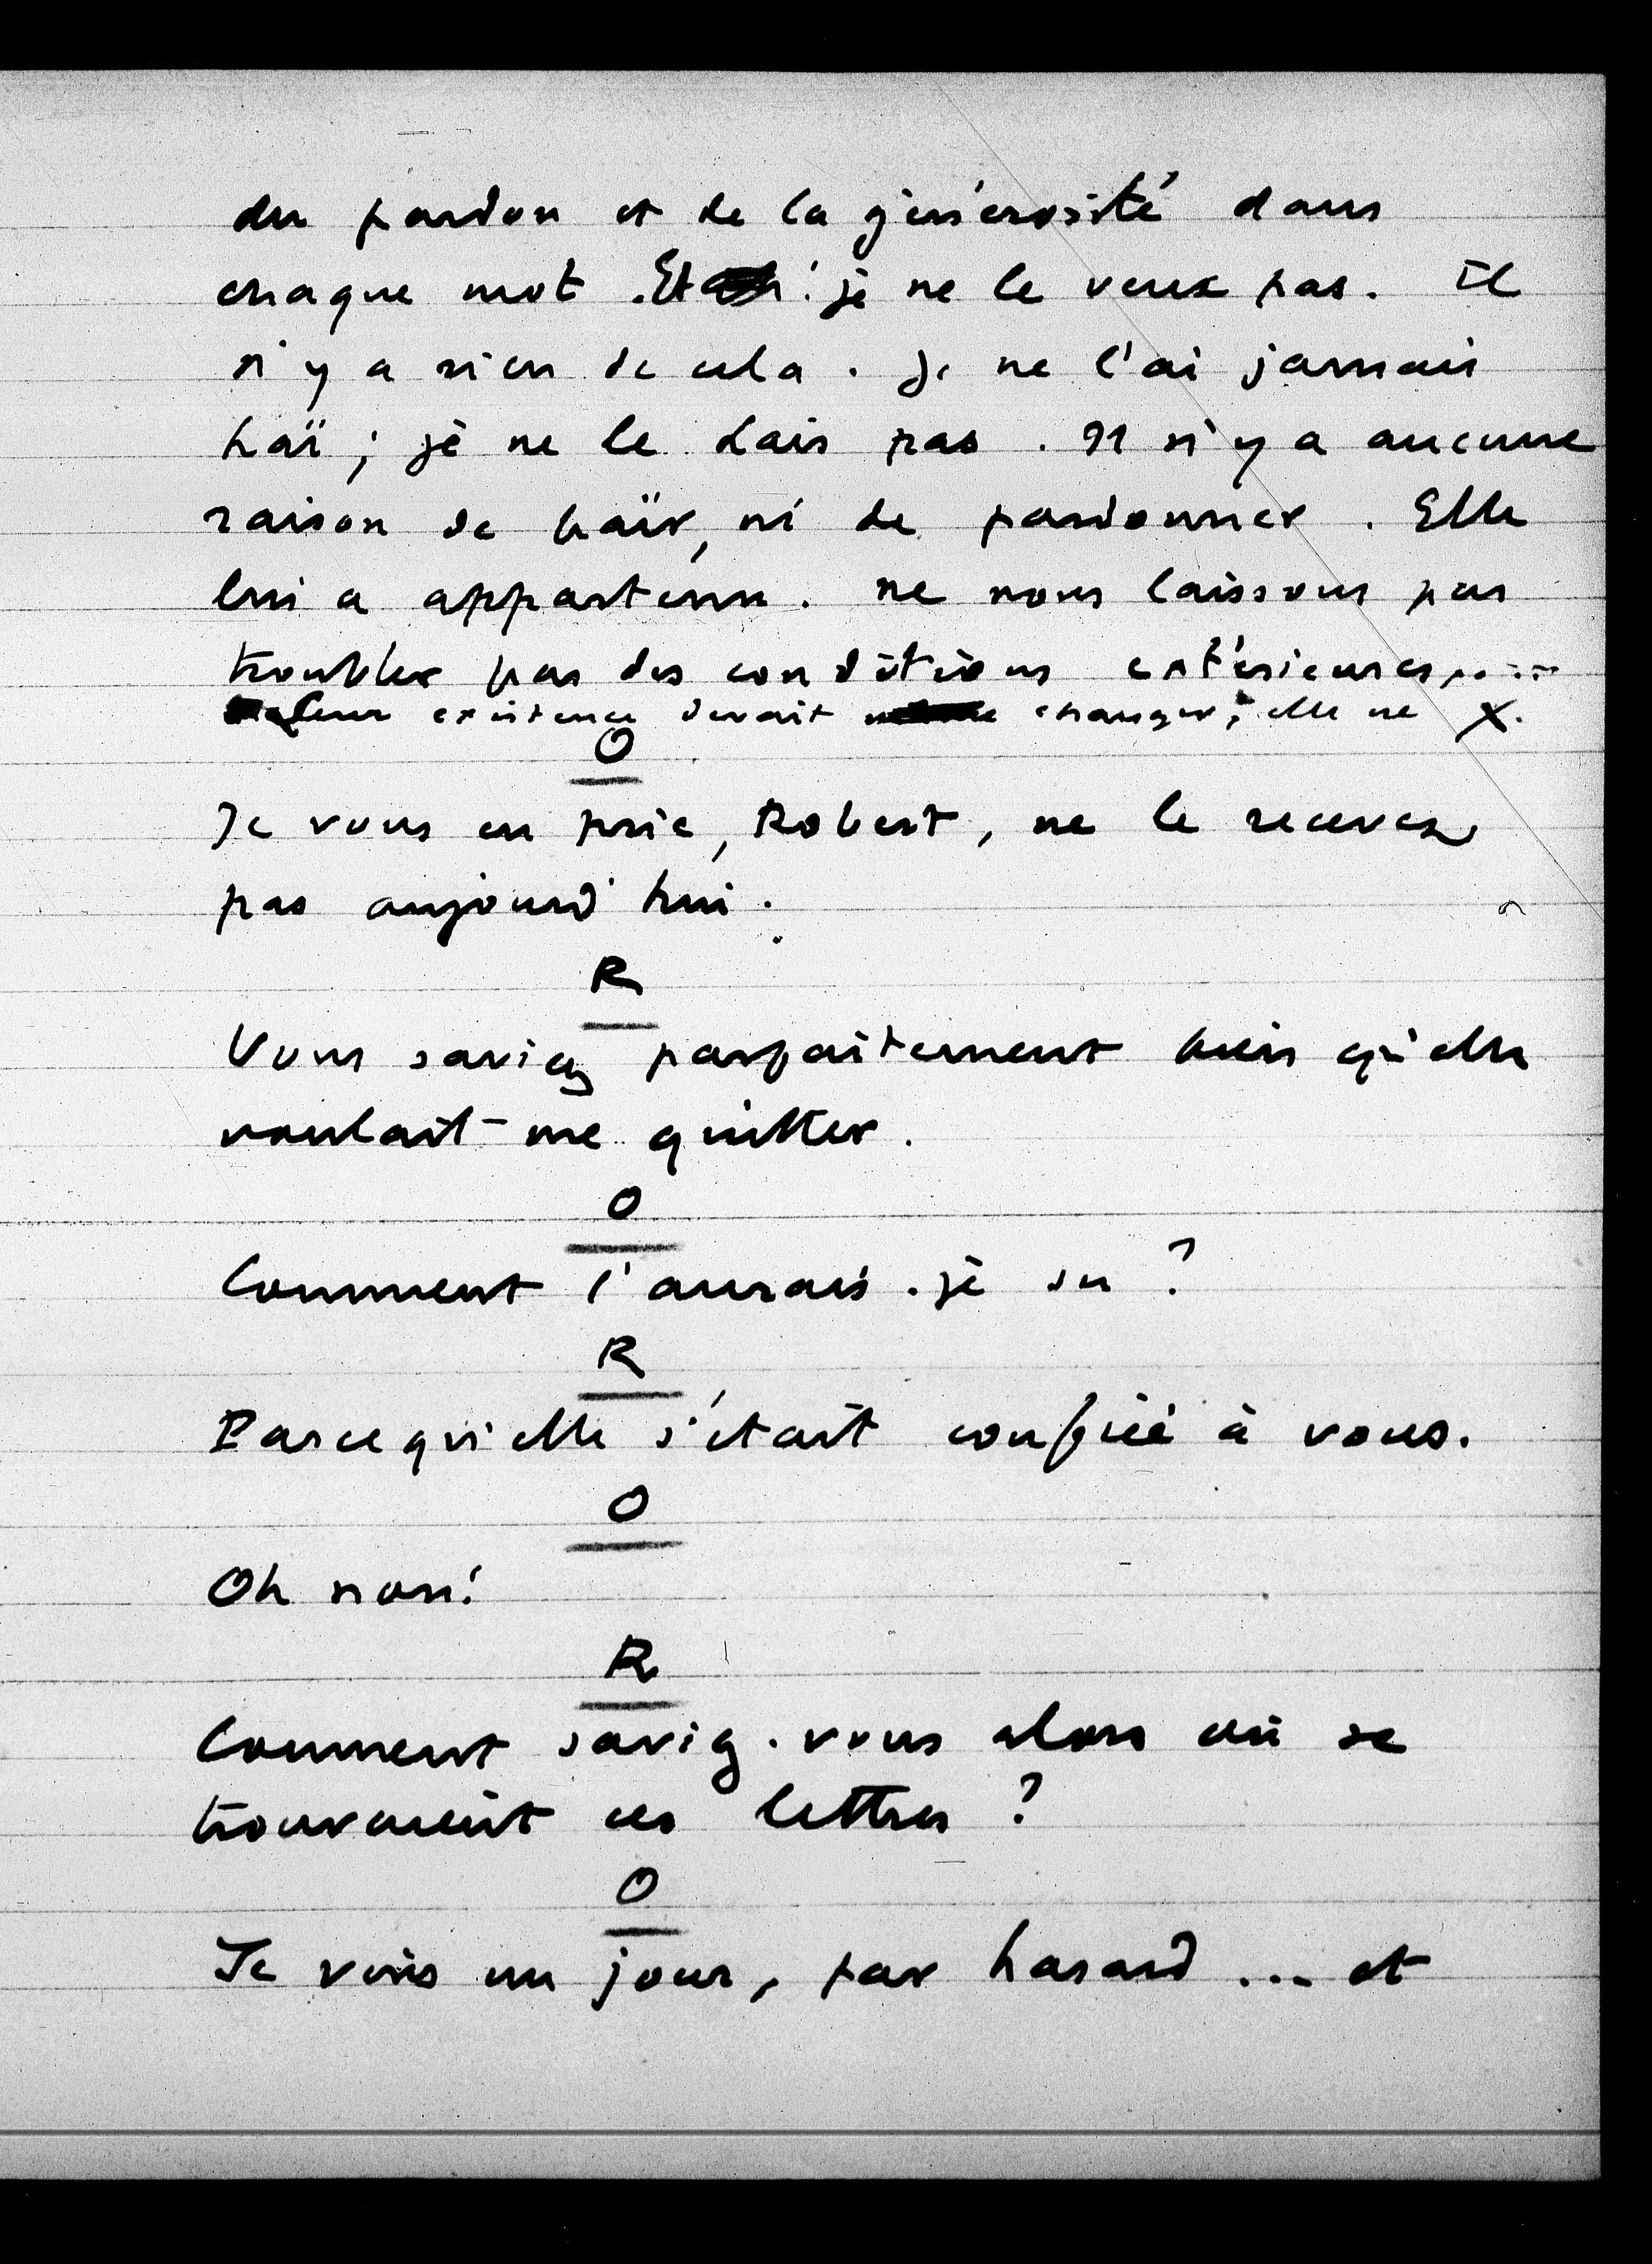 du pardon et de la générosité dans
chaque mot. Et je ne le veux pas. Il
n'y a rien de cela. Je ne l'ai jamais
haï; je ne le hais pas. Il n'y a aucune
raison de haïr, ni de pardonner. Elle
lui a appartenu. ne nous laissons pas
troubler par des conditions extérieures.....
leur existence devait changer; elle ne X.
O
Je vous en prie, Robert, ne le recevez
pas aujourd'hui.
R
Vous saviez parfaitement bien qu'elle
voulait me quitter.
O
Comment l'aurais-je su?
R
Parcequ'elle s'était confiée à vous.
O
Oh non!
R
Comment saviez-vous alors où se
trouvaient ces lettres?
O
Je vins un jour, par hasard ... et